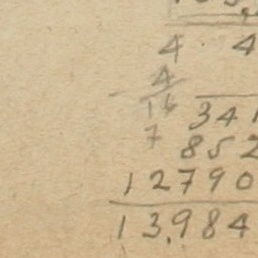 4 4
4
16 341
7 852
12790
13,984